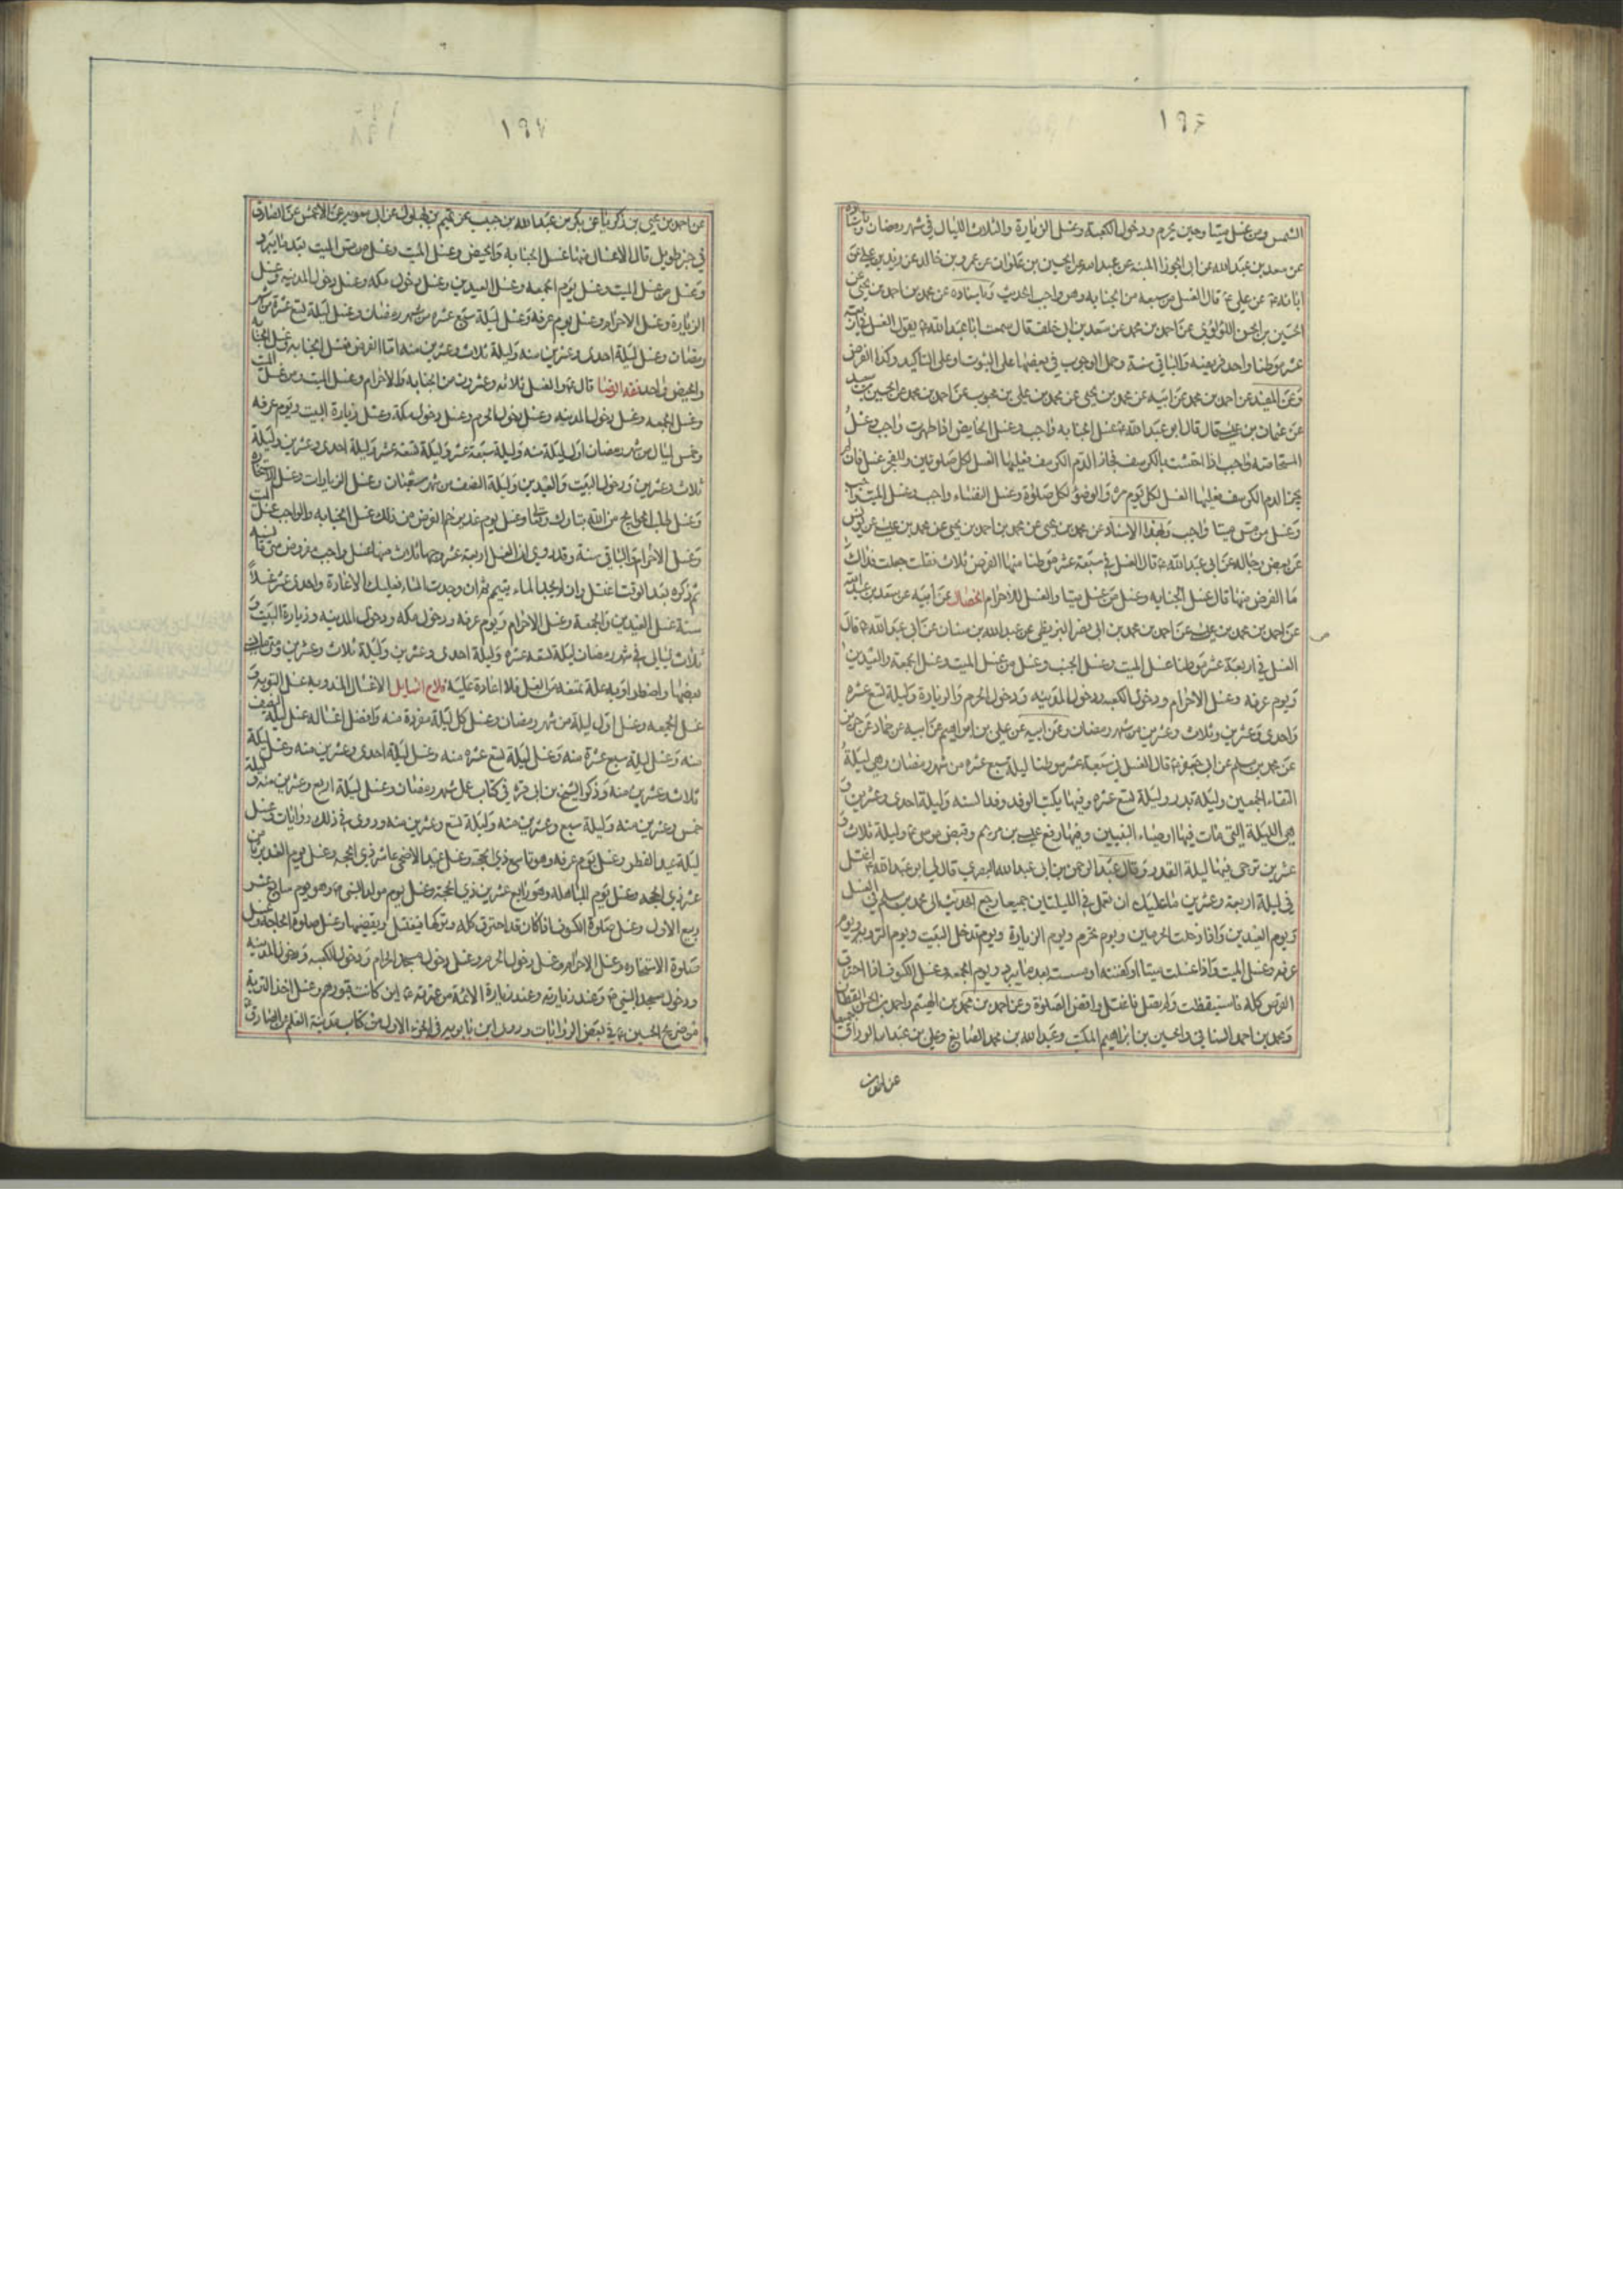 ١٩٦
الشمس ومن غسل ميتا وحين يحرم ودخول الكعبة وغسل الزيارة والثلاث الليال في شهر رمضان
عن سعد بن عبد الله عن ابى الجوزا المنبه عن عبد الله عن الحسين بن علوان عن عمرو بن خالد عن زيد بن علي عن
ابائه عن علي ع قال الغسل من سبعة من الجنابة وهو واجب الحديث وباسناده عن محمد بن احمد بن يحيى عن
الحسين بن الحسن اللؤلؤي عن احمد بن محمد عن سعد بن ابى خلف قال سمعت ابا عبد الله ع يقول الغسل في اربعة
عشر موطنا واحد فريضة والباقي سنة وحمل الوجوب في بعضها على الثبوت او على التأكيد وكذا الفرض
وعن المفيد عن احمد بن محمد عن ابيه عن محمد بن يحيى عن محمد بن علي بن محبوب عن احمد بن محمد عن الحسين بن سعيد
عن عثمان بن عيسى قال قال ابو عبد الله ع غسل الجنابة واجب وغسل الحايض اذا طهرت واجب وغسل
المستحاضة واجب اذا احتشت بالكرسف فجاز الدم الكرسف فعليها الغسل لكل صلوتين وللفجر غسل فان لم
يجز الدم الكرسف فعليها الغسل لكل يوم مرة والوضوء لكل صلوة وغسل النفساء واجب وغسل الميت واجب
وغسل من مس ميتا واجب وبهذا الاسناد عن محمد بن يحيى عن محمد بن احمد بن يحيى عن محمد بن عيسى عن يونس
عن بعض رجاله عن ابى عبد الله ع قال الغسل في سبعة عشر موطنا منها الفرض ثلاث فقلت جعلت فداك
ما الفرض منها قال غسل الجنابة وغسل من غسل ميتا والغسل للاحرام الخصال عن ابيه عن سعد بن عبد الله
عن احمد بن محمد بن عيسى عن احمد بن محمد بن ابى نصر البزنطي عن عبد الله بن سنان عن ابى عبد الله ع قال
الغسل في اربعة عشر موطنا غسل الميت وغسل الجنب وغسل من غسل الميت وغسل الجمعة والعيدين
ويوم عرفه وغسل الاحرام ودخول الكعبه ودخول المدينه ودخول الحرم والزيارة وليلة تسع عشره
واحدى وعشرين وثلاث وعشرين من شهر رمضان وعن ابيه عن علي بن ابراهيم عن ابيه عن حماد عن حريز
عن محمد بن مسلم عن ابى جعفر ع قال الغسل في سبعة عشر موطنا ليلة سبع عشره من شهر رمضان وهي ليلة
التقاء الجمعين وليله بدر وليلة تسع عشره وفيها يكتب الوفد وفد السنه وليلة احدى وعشرين و
هي الليلة التى مات فيها اوصياء النبيين وفيها رفع عيسى بن مريم وقبض موسى ع وليلة ثلاث و
عشرين ترجى فيها ليلة القدر وقال عبد الرحمن بن ابى عبد الله البصري قال لي ابو عبد الله ع اغتسل
في ليلة اربعة وعشرين ما عليك ان تعمل في الليلتين جميعا رجع الحديث الى محمد بن مسلم في الغسل
ويوم العيدين واذا دخلت الحرمين ويوم تحرم ويوم الزيارة ويوم تدخل البيت ويوم التروية ويوم
عرفه وغسل الميت واذا غسلت ميتا او كفنته او مسسته بعد ما يبرد ويوم الجمعه وغسل الكسوف اذا احترق
القرص كله فاستيقظت ولم تصل فاغتسل واقض الصلوة وعن احمد بن محمد بن الهيثم واحمد بن الحسن القطان
ومحمد بن احمد السناني والحسين بن ابراهيم المكتب وعبد الله بن محمد الصايغ وعلي بن عبد الله الوراق جميعا
١٩٧
عن احمد بن يحيى بن زكريا عن بكر بن عبد الله بن حبيب عن تميم بن بهلول عن ابى معويه عن الاعمش عن الصادق
في خبر طويل قال الاغسال منها غسل الجنابه والحيض وغسل الميت وغسل من مس الميت بعد ما يبرد
وغسل من غسل الميت وغسل يوم الجمعه وغسل العيدين وغسل دخول مكه وغسل دخول المدينه وغسل
الزيارة وغسل الاحرام وغسل يوم عرفه وغسل ليلة سبع عشره من شهر رمضان وغسل ليلة تسع عشرة من شهر
رمضان وغسل ليلة احدى وعشرين منه وليلة ثلاث وعشرين منه اما الفرض فغسل الجنابه وغسل الجنابه
والحيض واحد فقه الرضا قال ع والغسل ثلاثه وعشرون من الجنابه والاحرام وغسل الميت ومن غسل الميت
وغسل الجمعه وغسل دخول المدينه وغسل دخول الحرم وغسل دخول مكة وغسل زيارة البيت ويوم عرفه
وخمس ليال من شهر رمضان اول ليلة منه وليلة سبعة عشر وليلة تسعة عشر وليلة احدى وعشرين وليلة
ثلاث وعشرين ودخول البيت والعيدين وليلة النصف من شهر شعبان وغسل الزيارات وغسل الاستخاره
وغسل طلب الحوائج من الله تبارك وتعالى وغسل يوم غدير خم الفرض من ذلك غسل الجنابه والواجب غسل الميت
وغسل الاحرام والباقي سنة وقد روي ان الغسل اربعة عشر وجها ثلاث منها غسل واجب مفروض متى ما نسيه
ثم ذكره بعد الوقت اغتسل وان لم يجد الماء يتيمم ثم ان وجدت الماء فعليك الاعادة واحدى عشر غسلا
سنة غسل العيدين والجمعة وغسل الاحرام ويوم عرفه ودخول مكه ودخول المدينه وزيارة البيت و
ثلاث ليالى في شهر رمضان ليلة تسعه عشره وليلة احدى وعشرين وليلة ثلاث وعشرين ومتى ما نسى
بعضها او اضطر او به علة تمنعه من الغسل فلا اعادة عليه فلاح السايل الاغسال المندوبه غسل التوبه و
غسل الجمعه وغسل اول ليلة من شهر رمضان وغسل كل ليلة مفردة منه وافضل اغساله غسل ليلة النصف
منه وغسل ليلة سبع عشرة منه وغسل ليلة تسع عشره منه وغسل ليلة احدى وعشرين منه وغسل ليلة
ثلاث وعشرين منه وذكر الشيخ بن ابى قره في كتاب عمل شهر رمضان وغسل ليلة اربع وعشرين منه وليلة
خمس وعشرين منه وليلة سبع وعشرين منه وليلة تسع وعشرين منه وروى في ذلك روايات وغسل
ليلة عيد الفطر وغسل يوم عرفه وهو تاسع ذي الحجة وغسل عيد الاضحى عاشر ذي الحجه وغسل يوم الغدير ثامن
عشر ذي الحجه وغسل يوم المباهله وهو رابع عشرين ذي الحجة وغسل يوم مولد النبي ص وهو يوم سابع عشر
ربيع الاول وغسل صلوة الكسوف اذا كان قد احترق كله وتركها فيغتسل ويقضيها وغسل صلوة الحاجه وغسل
صلوة الاستخاره وغسل الاحرام وغسل دخول الحرم وغسل دخول مسجد الحرام ودخول الكعبه ودخول المدينه
ودخول مسجد النبي ص وعند زيارته وعند زيارة الائمة من عترته ع اين كانت قبورهم وغسل اخذ التربة
من ضريح الحسين ع في بعض الروايات وروى ابن بابويه في الجزء الاول من كتاب مدينة العلم عن الصادق